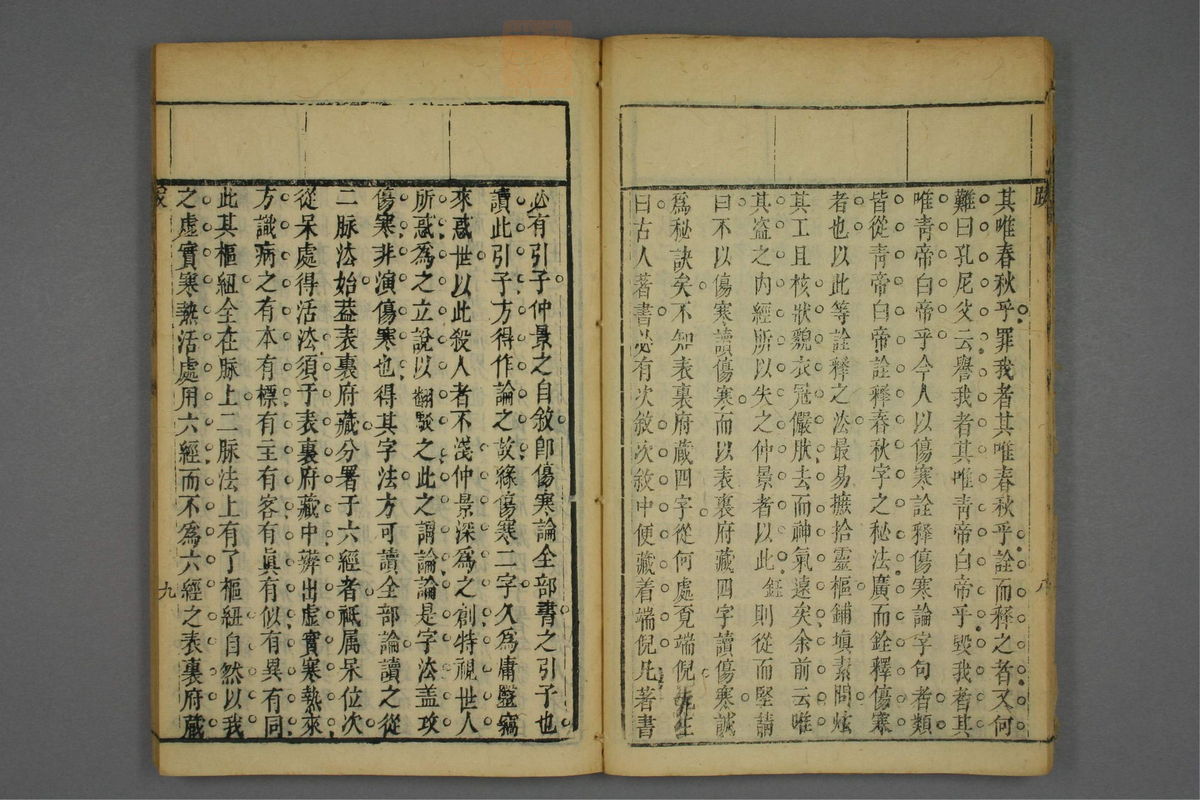 跋
八
其唯春秋乎罪我者其唯春秋乎詮而釋之者又何
難曰孔尼父云譽我者其唯靑帝白帝乎毀我者其
唯靑帝白帝乎今人以傷寒詮釋傷寒論字句者類
皆從靑帝白帝詮釋春秋字之秘法廣而銓釋傷寒
者也以此等詮釋之法最易摭拾靈樞鋪塡素問炫
其工且核狀貌衣冠儼肰去而神氣遠矣余前云唯
其盜之內經所以失之仲景者以此鈺則從而堅請
曰不以傷寒讀傷寒而以表裏府藏四字讀傷寒誠
爲秘訣矣不知表裏府藏四字從何處覓端倪先生
曰古人著書必有次敘次敘中便藏着端倪凡著書
必有引子仲景之自敘卽傷寒論全部書之引子也
讀此引子方得作論之故緣傷寒二字久爲庸醫竊
來惑世以此殺人者不淺仲景深爲之創特視世人
所惑爲之立說以翻駁之此之謂論論是字法盖攻
傷寒非演傷寒也得其字法方可讀全部論讀之從
二脉法始蓋表裏府藏分署于六經者祗属呆位次
從呆處得活法須于表裏府藏中辨出虛實寒熱來
方識病之有本有標有主有客有眞有似有異有同
此其樞紐全在脉上二脉法上有了樞紐自然以我
之虛實寒熱活處用六經而不爲六經之表裏府藏
九